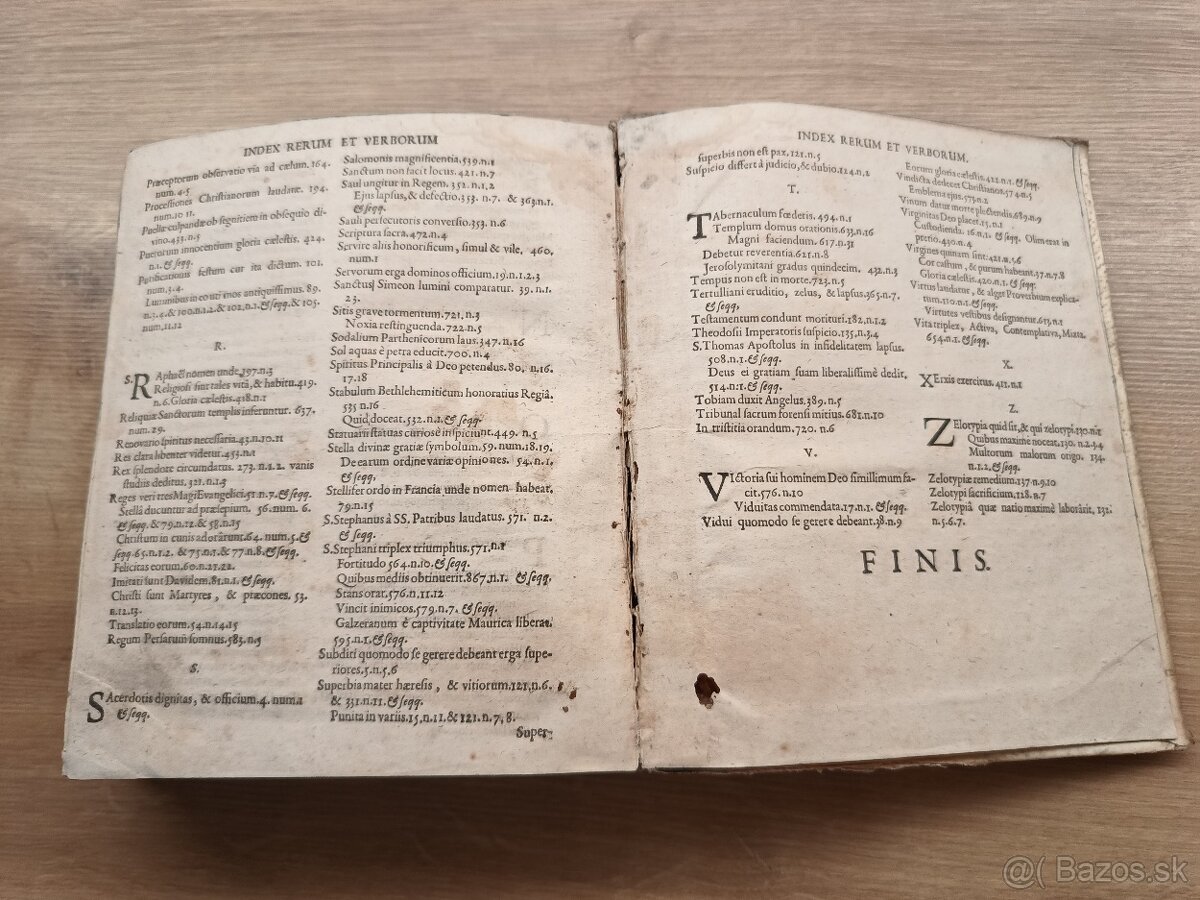 INDEX RERUM ET VERBORUM
Præceptorum observatio via ad cælum. 164.
num. 4.5
Processiones Christianorum laudatæ. 194.
num. 10 11.
Puellæ culpandæ ob segnitiem in obsequio di-
vino. 433. n.5
Puerorum innocentium gloria cælestis. 424.
n.1. & seqq.
Purificationis festum cur ita dictum. 101.
num. 3.4.
Luminibus in eo uti mos antiquissimus. 89.
n.3.4. & 100.n.1.2. & 102.n.1.& seqq. & 105.
num. 11.12
R.
S. RAphaël nomen unde. 397. n.3
Religiosi sint tales vitâ, & habitu. 419.
n.6. Gloria cælestis. 418. n.1
Reliquiæ Sanctorum templis inferuntur. 637.
num. 29.
Renovatio spiritus necessaria. 43. n.10. 11
Res clara libenter videtur. 453. n.1
Rex splendore circumdatus. 273. n.1.2. vanis
studiis deditus. 321. n.1.3
Reges veri tres Magi Evangelici. 51. n.7. & seqq.
Stellâ ducuntur ad præsepium. 56. num. 6.
& seqq. & 79. n.12. & 58. n.15
Christum in cunis adorârunt. 64. num. 5. &
seqq. 65. n.1.2. & 75. n.1. & 77. n.8. & seqq.
Felicitas eorum. 60. n.21.22.
Imitati sunt Davidem. 81. n.1. & seqq.
Christi sunt Martyres, & præcones. 53.
n.12.13.
Translatio eorum. 54. n.14.15
Regum Persarum somnus. 583. n.5
S.
SAcerdotis dignitas, & officium. 4. num. 1
& seqq.
Salomonis magnificentia. 539. n.1
Sanctum non facit locus. 421. n.7
Saul ungitur in Regem. 352. n.1.2
Ejus lapsus, & defectio. 353. n.7. & 363. n.1.
& seqq.
Sauli persecutoris conversio. 353. n.6
Scriptura sacra. 472. n.4
Servire aliis honorificum, simul & vile. 460,
num. 1
Servorum erga dominos officium. 19. n.1.2.3
Sanctus Simeon lumini comparatur. 39. n.1.
23.
Sitis grave tormentum. 721. n.3
Noxia restinguenda. 722. n.5
Sodalium Parthenicorum laus. 347. n.16
Sol aquas è petra educit. 700. n.4
Spiritus Principalis à Deo petendus. 80. n.16.
17.18
Stabulum Bethlehemiticum honoratius Regiâ.
535 n.16
Quid doceat. 532. n.1. & seqq.
Statuarii statuas curiosè inspiciunt. 449. n.5
Stella divinæ gratiæ symbolum. 59. num. 18.19.
De earum ordine variæ opiniones. 54. n.1.
& seqq.
Stellifer ordo in Francia unde nomen habeat.
79. n.15
S. Stephanus à SS. Patribus laudatus. 571. n.2.
& seqq.
S. Stephani triplex triumphus. 571. n.1
Fortitudo 564. n.10. & seqq.
Quibus mediis obtinuerit. 867. n.1. & seqq.
Stans orat. 576. n.11.12
Vincit inimicos. 579. n.7. & seqq.
Galzeranum è captivitate Maurica liberat.
595. n.1. & seqq.
Subditi quomodo se gerere debeant erga supe-
riores. 5. n.5.6
Superbia mater hæresis, & vitiorum. 121, n.6.
& 331. n.11. & seqq.
Punita in variis. 15, n.11. & 121. n.7, 8.
Super-
INDEX RERUM ET VERBORUM.
superbis non est pax. 121. n.5
Suspicio differt à judicio, & dubio. 124. n.1
T.
TAbernaculum fœderis. 494. n.1
Templum domus orationis. 633. n.16
Magni faciendum. 617. n.31
Debetur reverentia. 621. n.8
Jerosolymitani gradus quindecim. 432. n.3
Tempus non est in morte. 723. n.5
Tertulliani eruditio, zelus, & lapsus. 365. n.7.
& seqq.
Testamentum condunt morituri. 182. n.1.2
Theodosii Imperatoris suspicio. 135. n.3.4
S. Thomas Apostolus in infidelitatem lapsus.
508. n.1. & seqq.
Deus ei gratiam suam liberalissimè dedit.
514. n:1. & seqq.
Tobiam duxit Angelus. 389. n.5
Tribunal sacrum forensi mitius. 681. n.10
In tristitia orandum. 720. n.6
V.
VIctoria sui hominem Deo simillimum fa-
cit. 576. n.10
Viduitas commendata. 17. n.1. & seqq.
Vidui quomodo se gerere debeant. 38. n.9
Eorum gloria cælestis. 422. n.1. & seqq.
Vindicta dedecet Christianos. 574. n.5
Emblema ejus. 575. n.2
Vinum datur morte plectendis. 683. n.9
Virginitas Deo placet. 15. n.1
Custodienda. 16. n.1. & seqq. Olim erat in
pretio. 430. n.4
Virgines quinam sint. 421. n.5.6
Cor castum, & purum habeant. 37. n.7.8
Gloria cælestis. 420. n.1. & seqq.
Virtus laudatur, & algot Proverbium explica-
tum. 110. n.1. & seqq.
Virtutes vestibus designantur. 613. n.1
Vita triplex, Activa, Contemplativa, Mixta.
654. n.1. & seqq.
X.
XErxis exercitus. 411. n.1
Z.
ZElotypia quid sit, & qui zelotypi. 130. n.1
Quibus maximè noceat. 130. n.2.3.4
Multorum malorum origo. 134.
n.1.2. & seqq.
Zelotypiæ remedium. 137. n.9.10
Zelotypi sacrificium. 118. n.7
Zelotypiâ quæ natio maximè laborârit. 132.
n.5.6.7.
FINIS.
@( Bazos.sk